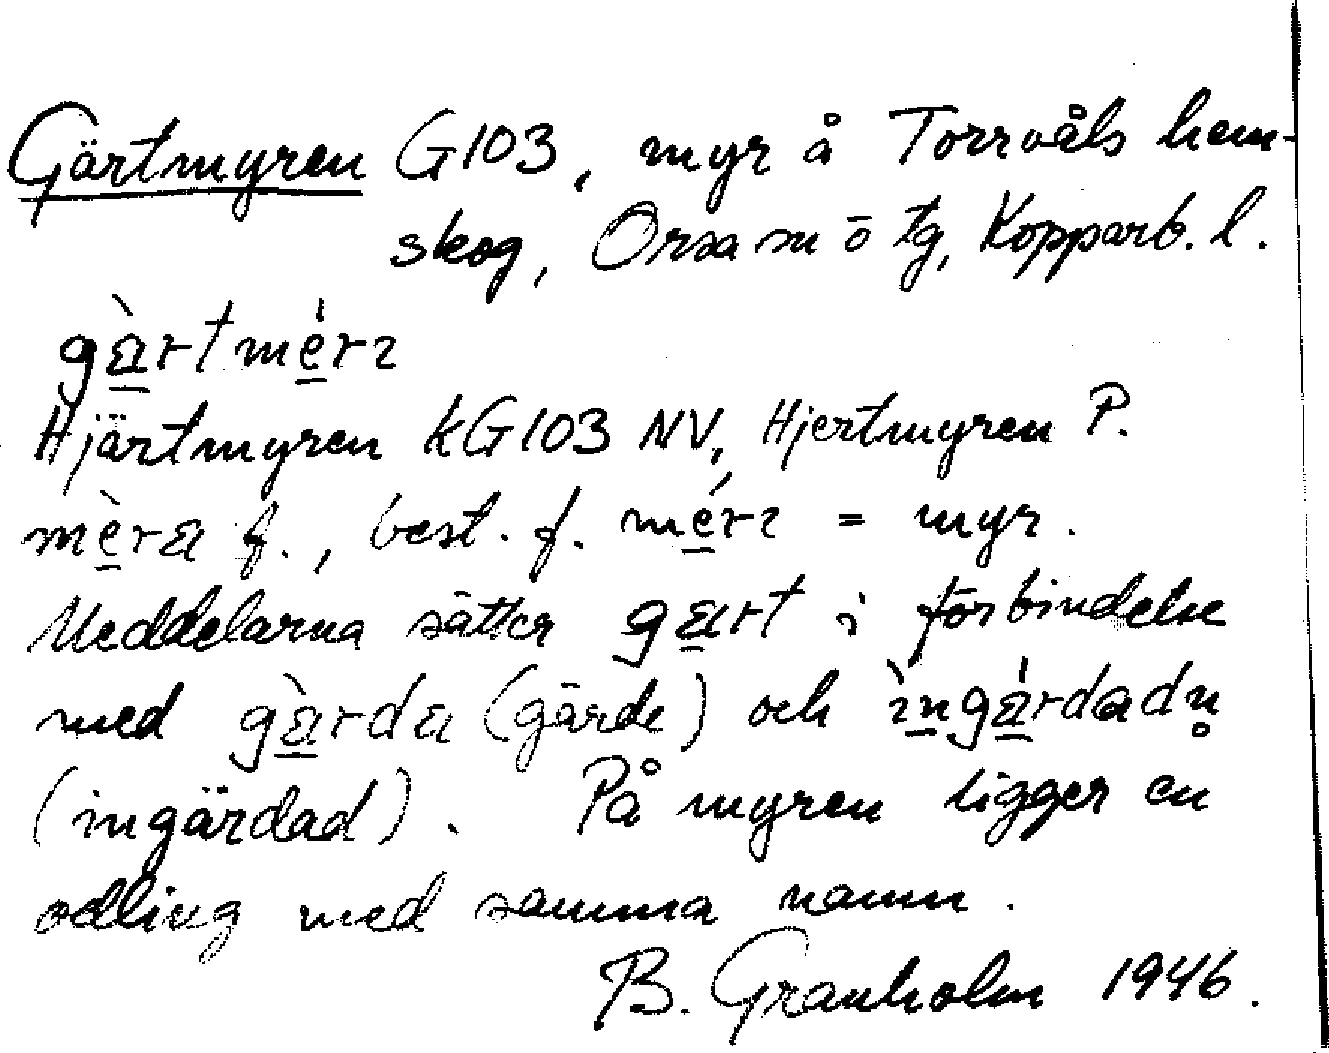 Gärtmyren G103, myr å Torrvåls hem-
skog, Orsa m ö tg, Kopparb. l.
gæ̀rtmérɪ
Hjärtmyren kG103 NV, Hjertmyren P.
mèra f., best. f. mérɪ = myr.
Meddelarna sätter gært i förbindelse
med gæ̀rda (gärde) och ɪ̀ngǽrdadn̥
(ingärdad). På myren ligger en
odling med samma namn.
B. Granholm 1946.